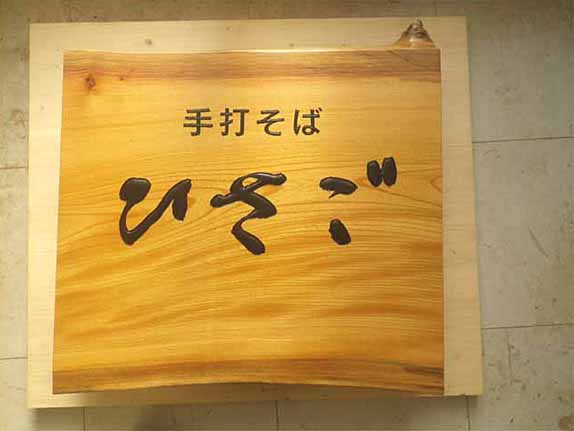 手打そば
ひさご